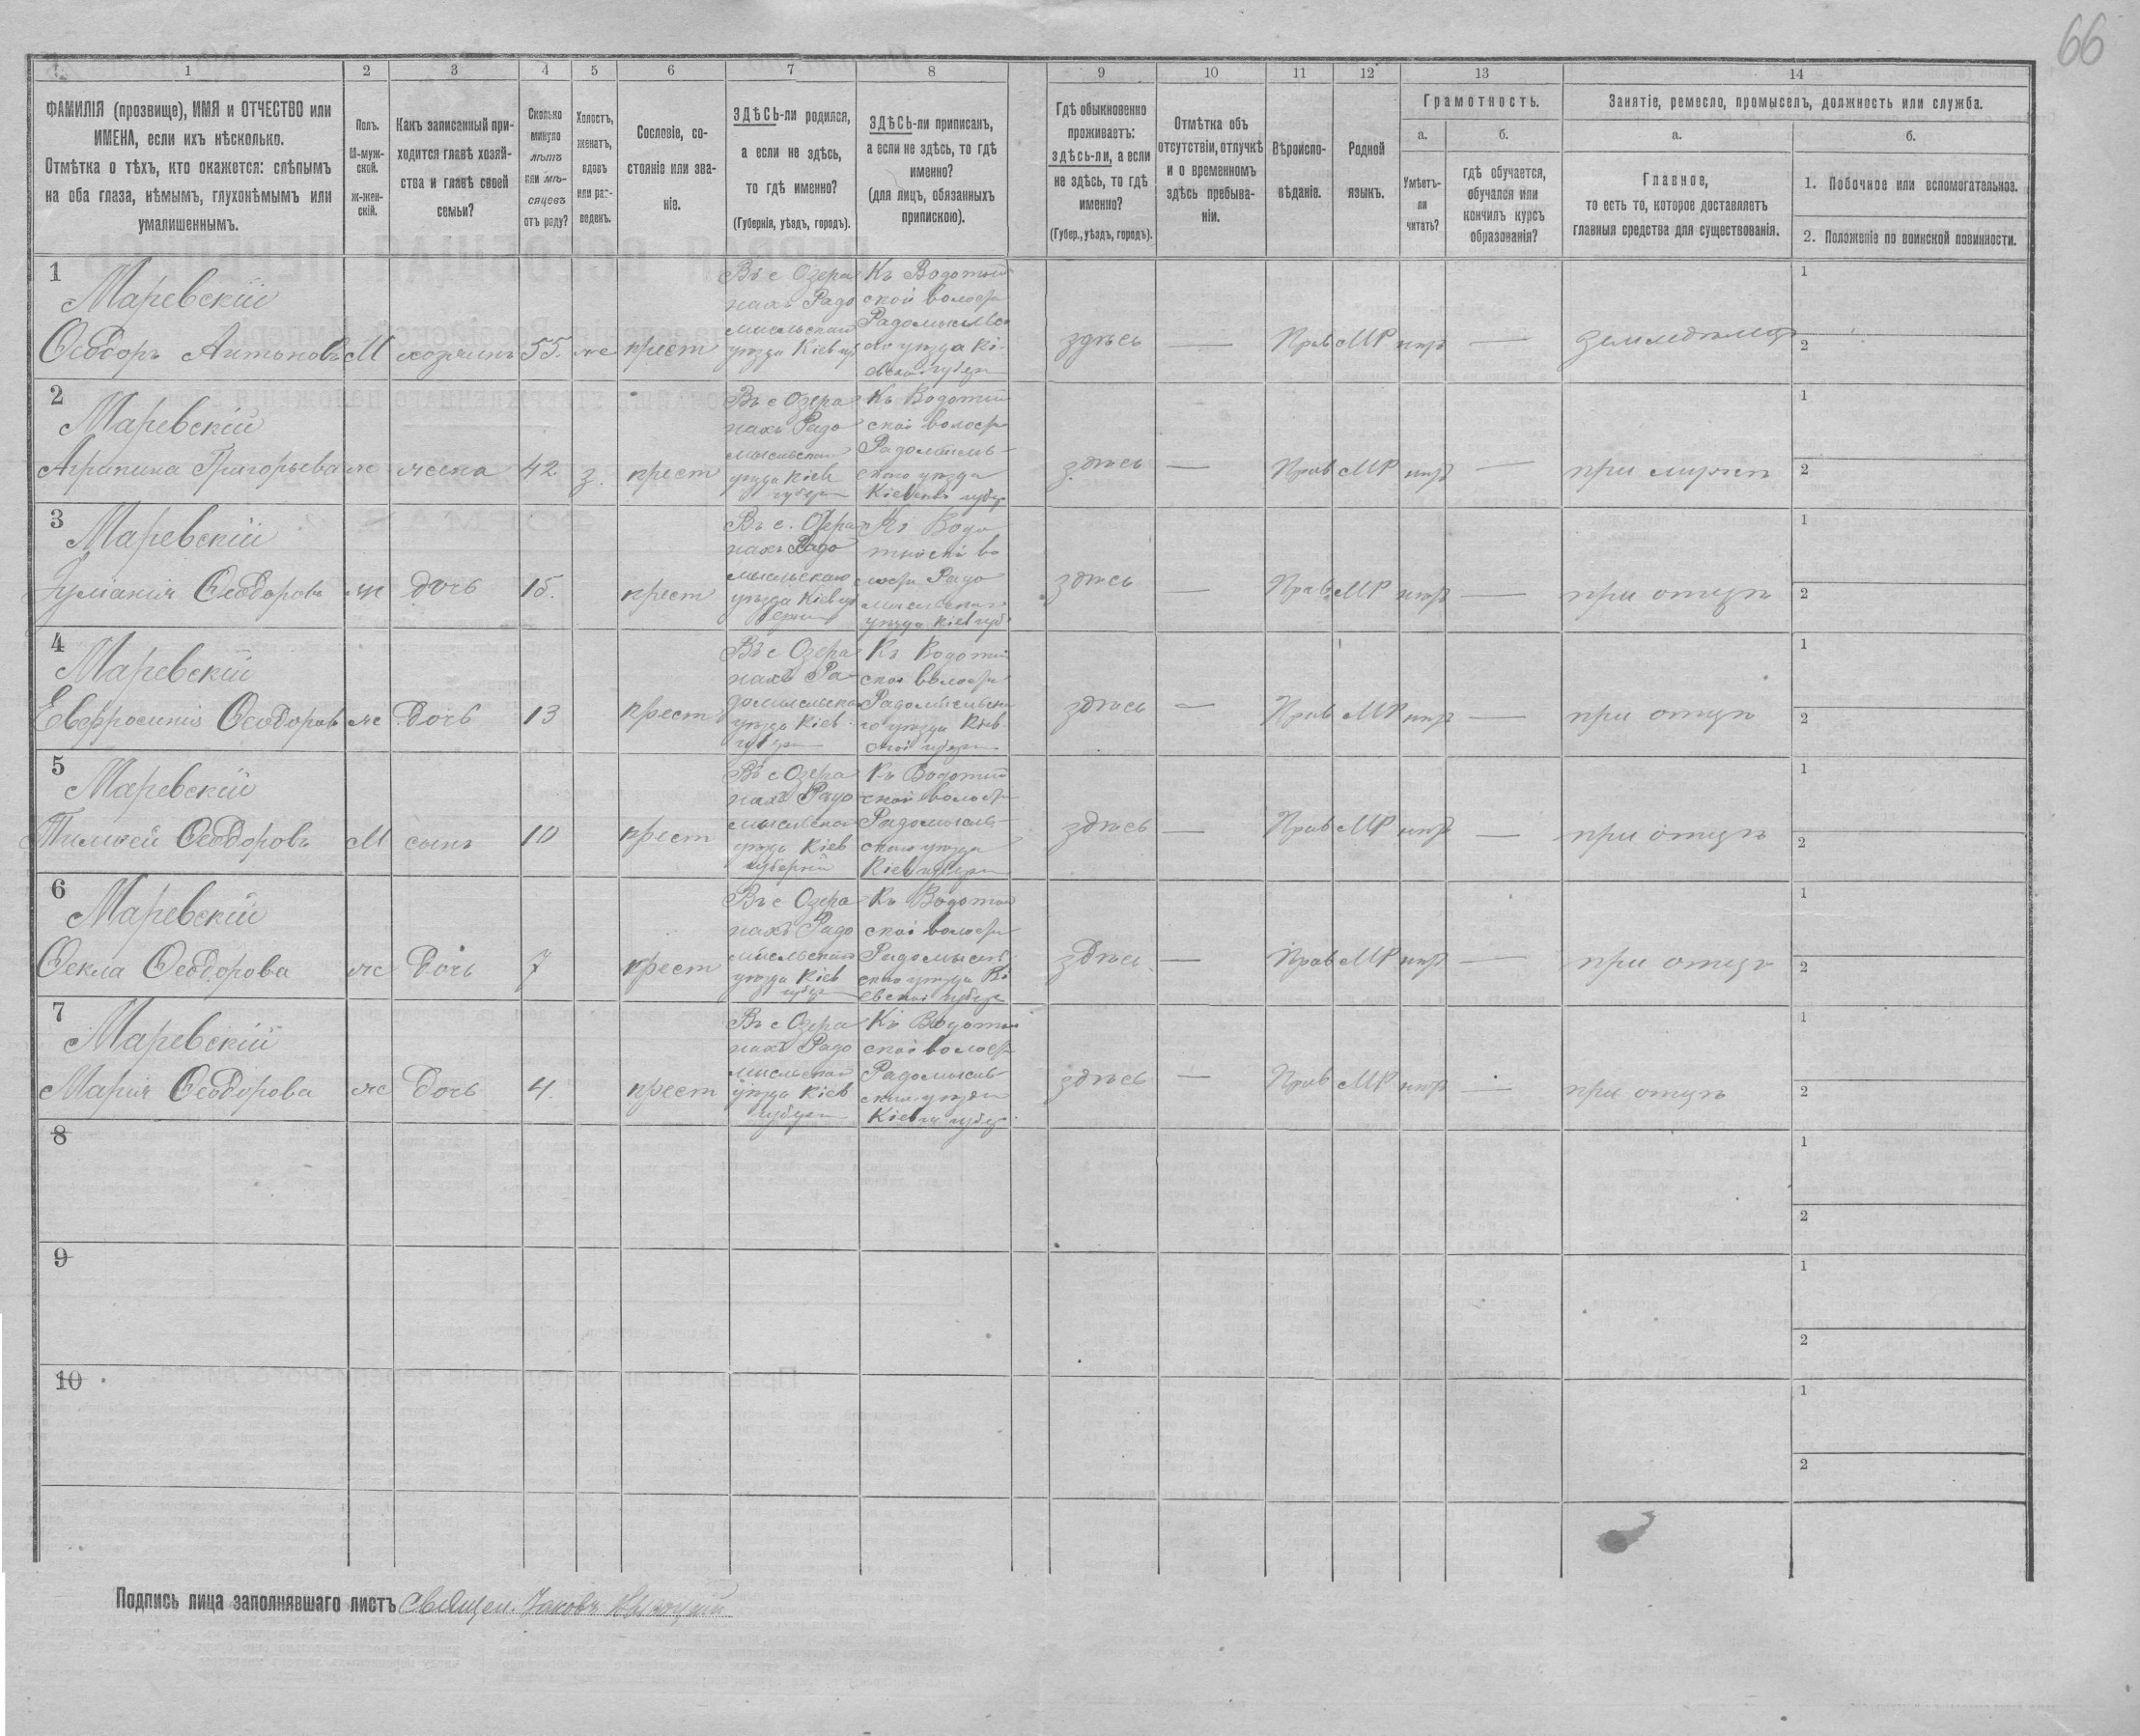 66
1 2 3 4 5 6 7 8 9 10 11 12 13 14
ФАМИЛІЯ (прозвище), ИМЯ и ОТЧЕСТВО или
ИМЕНА, если ихъ нѣсколько.
Отмѣтка о тѣхъ, кто окажется: слѣпымъ
на оба глаза, нѣмымъ, глухонѣмымъ или
умалишеннымъ.
Полъ.
М-муж-
ской.
ж-жен-
скій.
Какъ записанный при-
ходится главѣ хозяй-
ства и главѣ своей
семьи?
Сколько
минуло
лѣтъ
или мѣ-
сяцевъ
отъ роду?
Холостъ,
женатъ,
вдовъ
или раз-
веденъ.
Сословіе, со-
стояніе или зва-
ніе.
ЗДѢСЬ-ли родился,
а если не здѣсь,
то гдѣ именно?
(Губернія, уѣздъ, городъ).
ЗДѢСЬ-ли приписанъ,
а если не здѣсь, то гдѣ
именно?
(для лицъ, обязанныхъ
припискою).
Гдѣ обыкновенно
проживаетъ:
здѣсь-ли, а если
не здѣсь, то гдѣ
именно?
(Губер., уѣздъ, городъ).
Отмѣтка объ
отсутствіи, отлучкѣ
и о временномъ
здѣсь пребыва-
ніи.
Вѣроиспо-
вѣданіе.
Родной
языкъ.
Грамотность.
а.
Умѣетъ-
ли
читать?
б.
гдѣ обучается,
обучался или
кончилъ курсъ
образованія?
Занятіе, ремесло, промыселъ, должность или служба.
а.
Главное,
то есть то, которое доставляетъ
главныя средства для существованія.
б.
1. Побочное или вспомогательное.
2. Положеніе по воинской повинности.
1
Маревскій
Ѳеодоръ Антоновъ М хозяинъ 55. ж крест
Въ с Озера
нахъ Радо
мысльскаго
уѣзда Кіев
Къ Водотый
ской волости
уѣзда Кі-
здѣсь — Прав МР — 
1
2
2
Маревскій
Агрипина Григорьева ж жена 42 з. крест
Въ с Озера
нахъ Радо
уѣзда Кіев
Къ Водотый
ской волости
Радомысль-
скаго уѣзда
здѣсь — Прав МР — при мужѣ
1
2
3
Маревскій
Ѳеодорова ж дочь 15. крест
Въ с. Озера
нахъ Радо
мысльскаго
Къ Водо
лости Радо
мысльскаго
здѣсь — Прав МР — при отцѣ
1
2
4
Маревскій
Евфросинія Ѳеодоров ж дочь 13 крест
Въ с Озера
нахъ Ра-
уѣзда Кіев
Къ Водотый
ской волости
здѣсь — Прав МР — при отцѣ
1
2
5
Маревскій
Ѳеодоровъ М сынъ 10 крест
Въ с Озера
нахъ Радо
уѣзда Кіев
губерніи
Къ Водотый
ской волости
Радомысль-
скаго уѣзда
здѣсь — Прав МР — при отцѣ
1
2
6
Маревскій
Ѳекла Ѳеодорова ж дочь 7 крест
Въ с Озера
нахъ Радо
мысльскаго
уѣзда Кіев
Къ Водотый
ской волости
Радомысль
скаго уѣзда Кі
здѣсь — Прав МР — при отцѣ
1
2
7
Маревскій
Марія Ѳеодорова ж дочь 4. крест
Въ с Озера
нахъ Радо
уѣзда Кіев
Къ Водотый
ской волости
Радомысль-
здѣсь — Прав МР — при отцѣ
1
2
8
1
2
9
1
2
10
1
2
Подпись лица заполнявшаго листъ Священ. Іаковъ